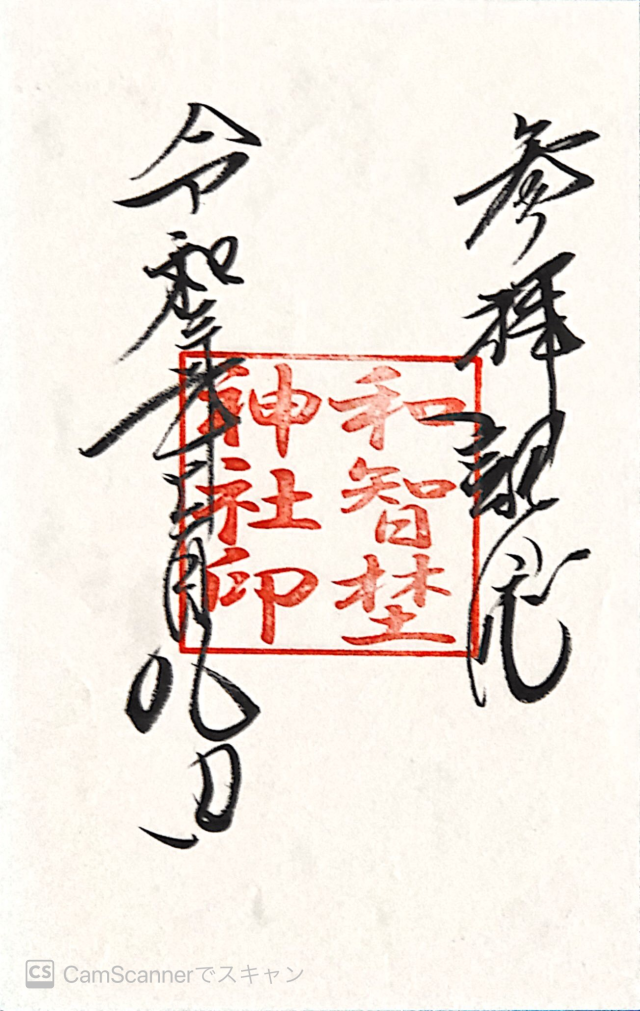 参拝記念
和智埜
神社印
令和年月日
CamScannerでスキャン